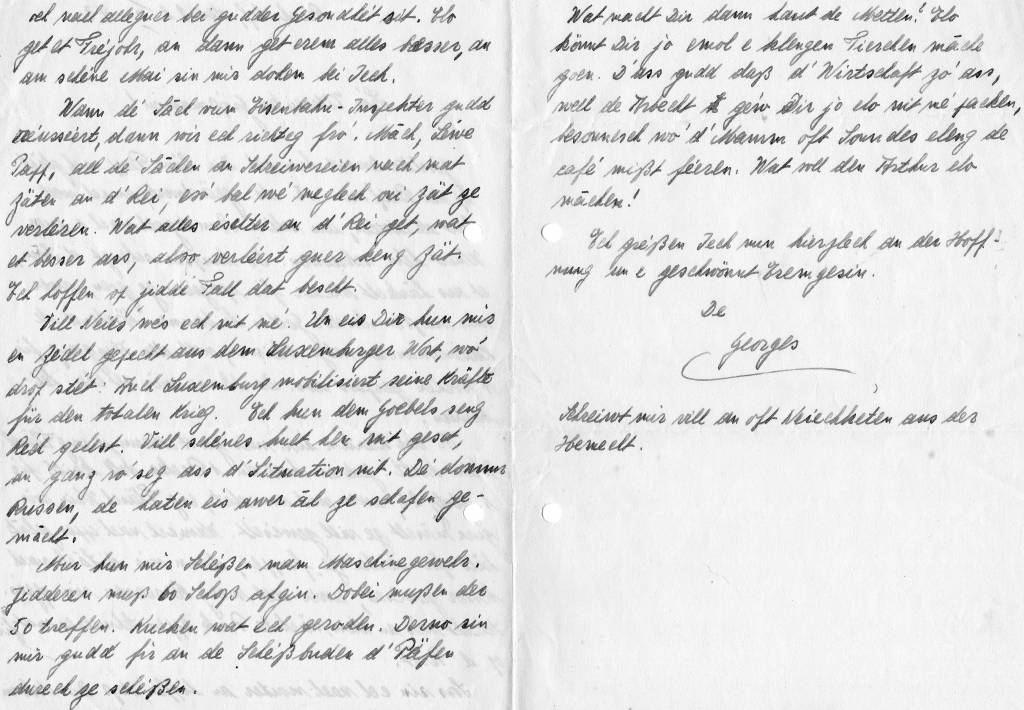 och nach alleguer bei gudder Gesondhét sit. Elo
get et Fréjohr, an dann get erem alles besser, an
am schéne Mai sin mir dohem bei Iech.
Wann dé Sâch vum Eisenbahn-Inspekter gudd
réusséiert, dann wir ech richteg fro. Mâch, Léiwe
Papp, all dé Sâchen an Schreiwereien nach mat
Zäten an d'Rei, esó bal wé méglech oni Zät ze
verléren. Wat alles éischter an d'Rei get, wat
et besser ass, also verléiert guer keng Zät.
Ech hoffen op jidde Fall dat bescht.
Vill Neies wés ech nit mé. Un eis Dir hun mir
en Zédel gepecht aus dem Luxemburger Wort, wó
drop stét: Auch Luxemburg mobilisiert seine Kräfte
für den totalen Krieg. Ech hun dem Goebels seng
Réd gelest. Vill schénes huet hen nit gesot,
an ganz ro'seg ass d'Situation nit. Dé domm
Russen, de haten eis awer äl ze schafen ge-
mâcht.
Mur hun mir Schéßen mam Maschinegewehr.
Jidderen muß 60 Schoß afgin. Dobei mußen der
50 treffen. Kucken wat ech geroden. Derno sin
mir gudd fir an de Schéßbuden d'Päfen
durech ze schéßen.
Wat mâcht Dir dann haut de Metten! Elo
könnt Dir jo emol e klengen Tierchen mâche
goen. D'ass gudd daß d'Wirtschaft zó ass,
well de Arbecht géw Dir jo elo nit mé packen,
besonnesch wó d'Mamm oft Sonndes eleng de
café mißt féieren. Wat soll den Arthur elo
mâchen!
Ech gréßen Iech nun hierzlech an der Hoff-
nung un e geschwönnt Eremgesin.
De
Georges
Schreiwt mir vill an oft Neiechketen aus der
Hemecht.